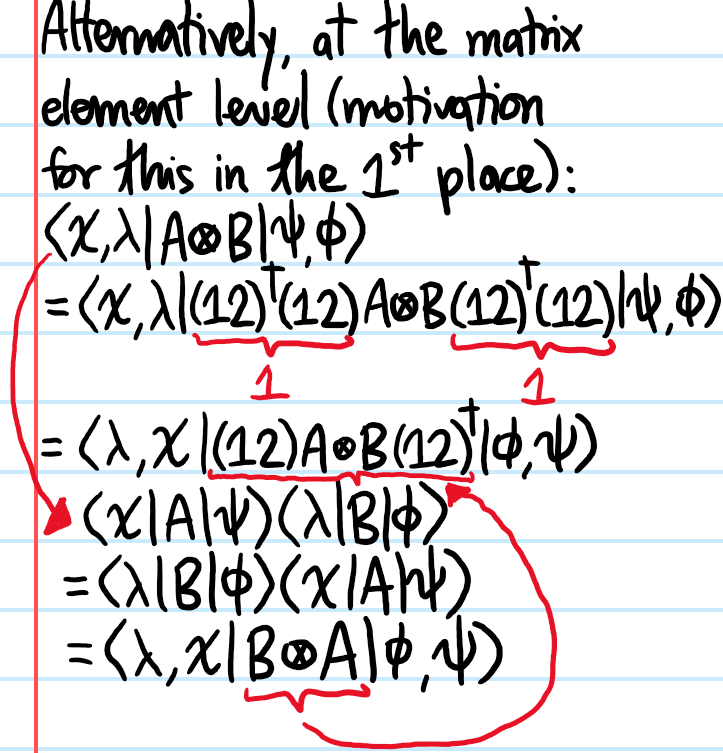 Alternatively, at the matrix
element level (motivation
for this in the 1ˢᵗ place):
⟨χ,λ|A⊗B|ψ,ϕ⟩
=⟨χ,λ|(12)†(12)A⊗B(12)†(12)|ψ,ϕ⟩
1 1
=⟨λ,χ|(12)A⊗B(12)†|ϕ,ψ⟩
⟨χ|A|ψ⟩⟨λ|B|ϕ⟩
=⟨λ|B|ϕ⟩⟨χ|A|ψ⟩
=⟨λ,χ|B⊗A|ϕ,ψ⟩